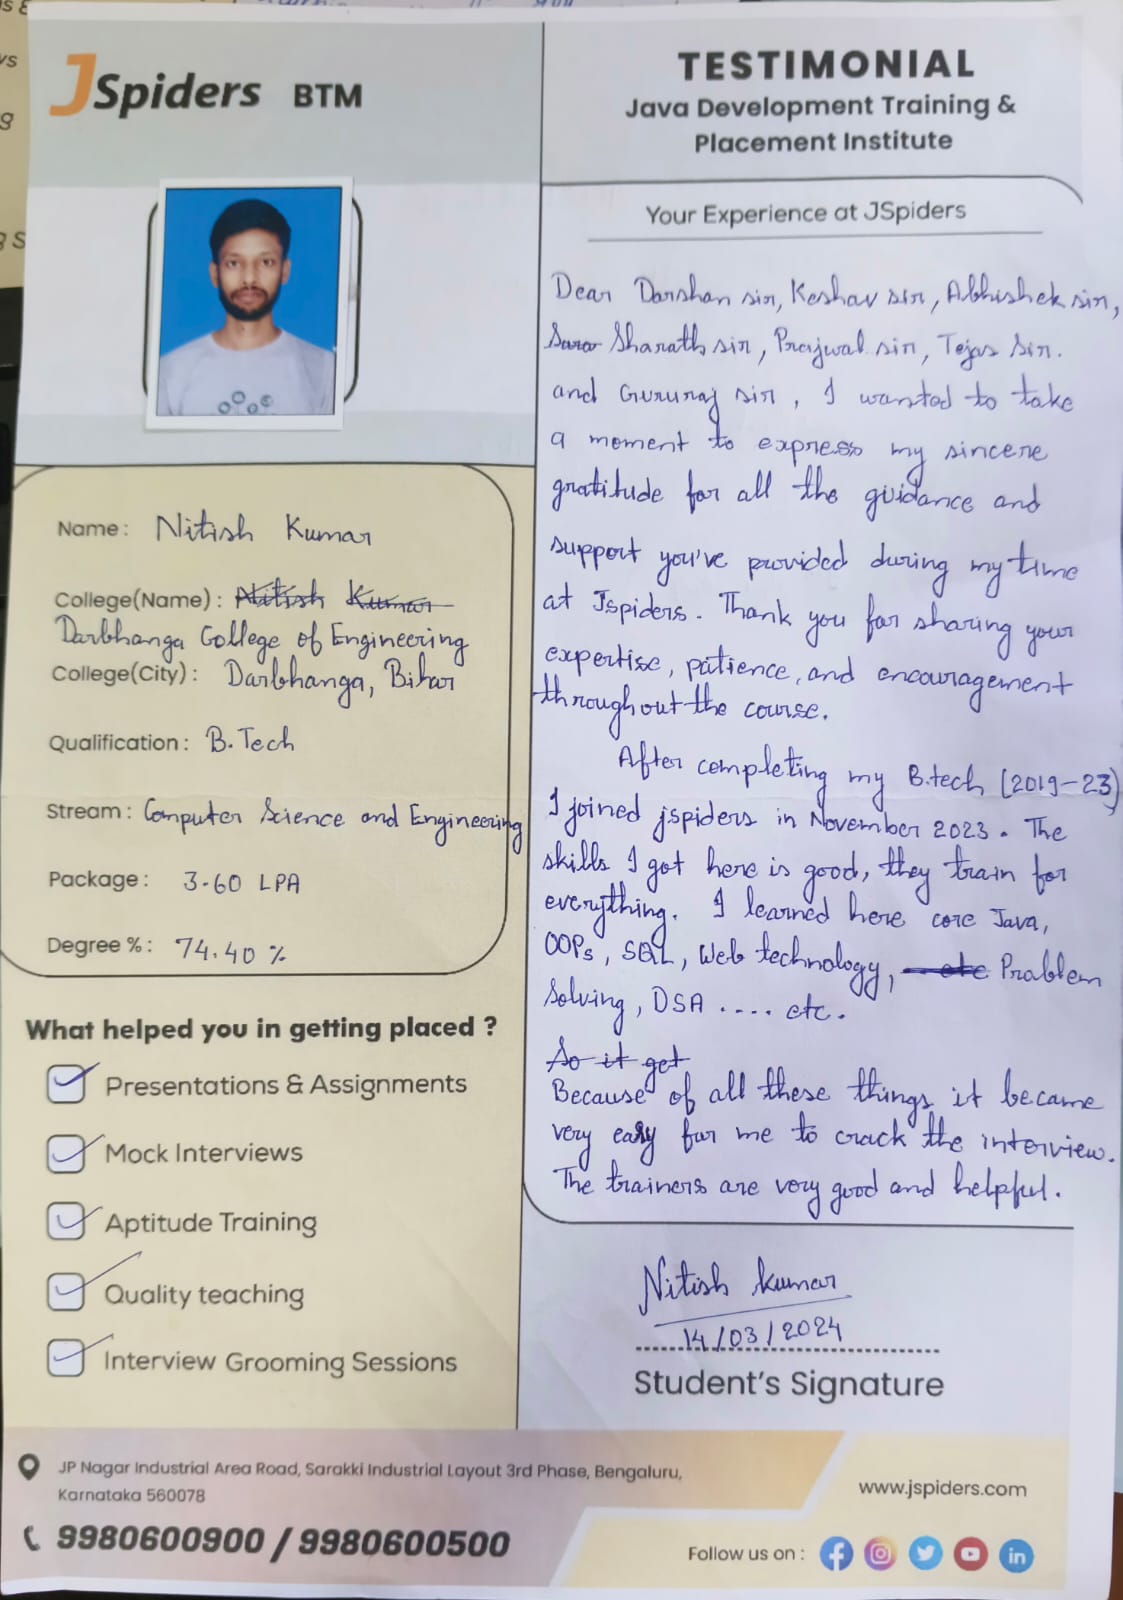 JSpiders BTM
TESTIMONIAL
Java Development Training &
Placement Institute
Name : Nitish Kumar
College(Name) : Nitish Kumar
Darbhanga College of Engineering
College(City) : Darbhanga, Bihar
Qualification : B.Tech
Stream : Computer Science and Engineering
Package : 3.60 LPA
Degree % : 74.40 %
What helped you in getting placed ?
Presentations & Assignments
Mock Interviews
Aptitude Training
Quality teaching
Interview Grooming Sessions
Your Experience at JSpiders
Dear Darshan sir, Keshav sir, Abhishek sir,
Sharath sir, Prajwal sir, Tejas Sir.
and Gururaj sir, I wanted to take
a moment to express my sincere
gratitude for all the guidance and
support you've provided during my time
at Jspiders. Thank you for sharing your
expertise, patience, and encouragement
throughout the course.
After completing my B.tech (2019-23)
I joined jspiders in November 2023. The
skills I got here is good, they train for
everything. I learned here core Java,
OOPs, SQL, Web technology, etc Problem
Solving, DSA .... etc.
So it get
Because of all these things it became
very easy for me to crack the interview.
The trainers are very good and helpful.
Nitish kumar
14/03/2024
Student's Signature
JP Nagar Industrial Area Road, Sarakki Industrial Layout 3rd Phase, Bengaluru,
Karnataka 560078
9980600900 / 9980600500
www.jspiders.com
Follow us on :